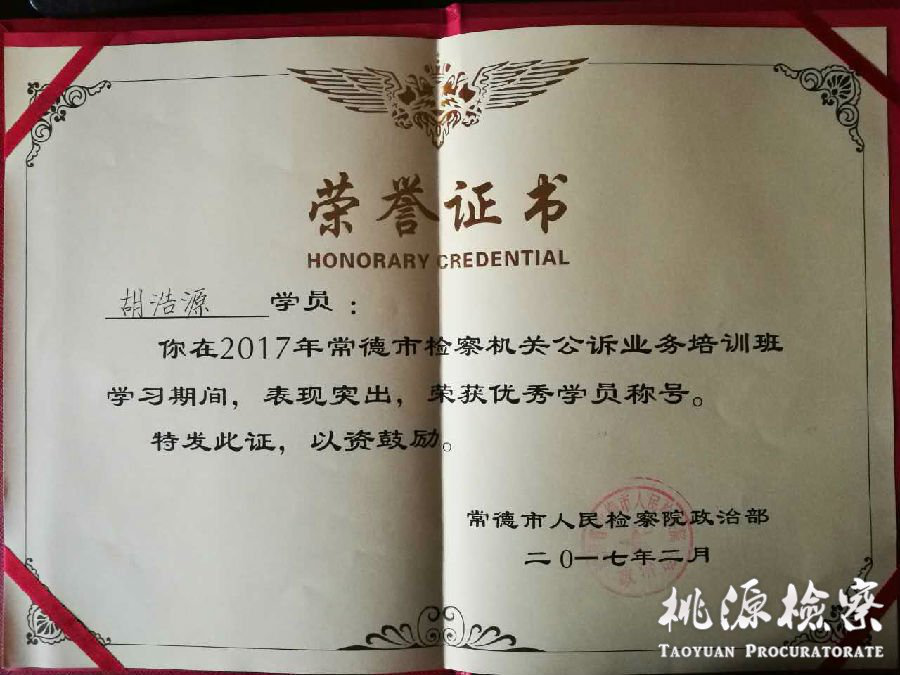 荣誉证书
HONORARY CREDENTIAL
胡浩源 学员：
你在2017年常德市检察机关公诉业务培训班
学习期间，表现突出，荣获优秀学员称号。
特发此证，以资鼓励。
常德市人民检察院政治部
二0一七年二月
桃源檢察
TAOYUAN PROCURATORATE